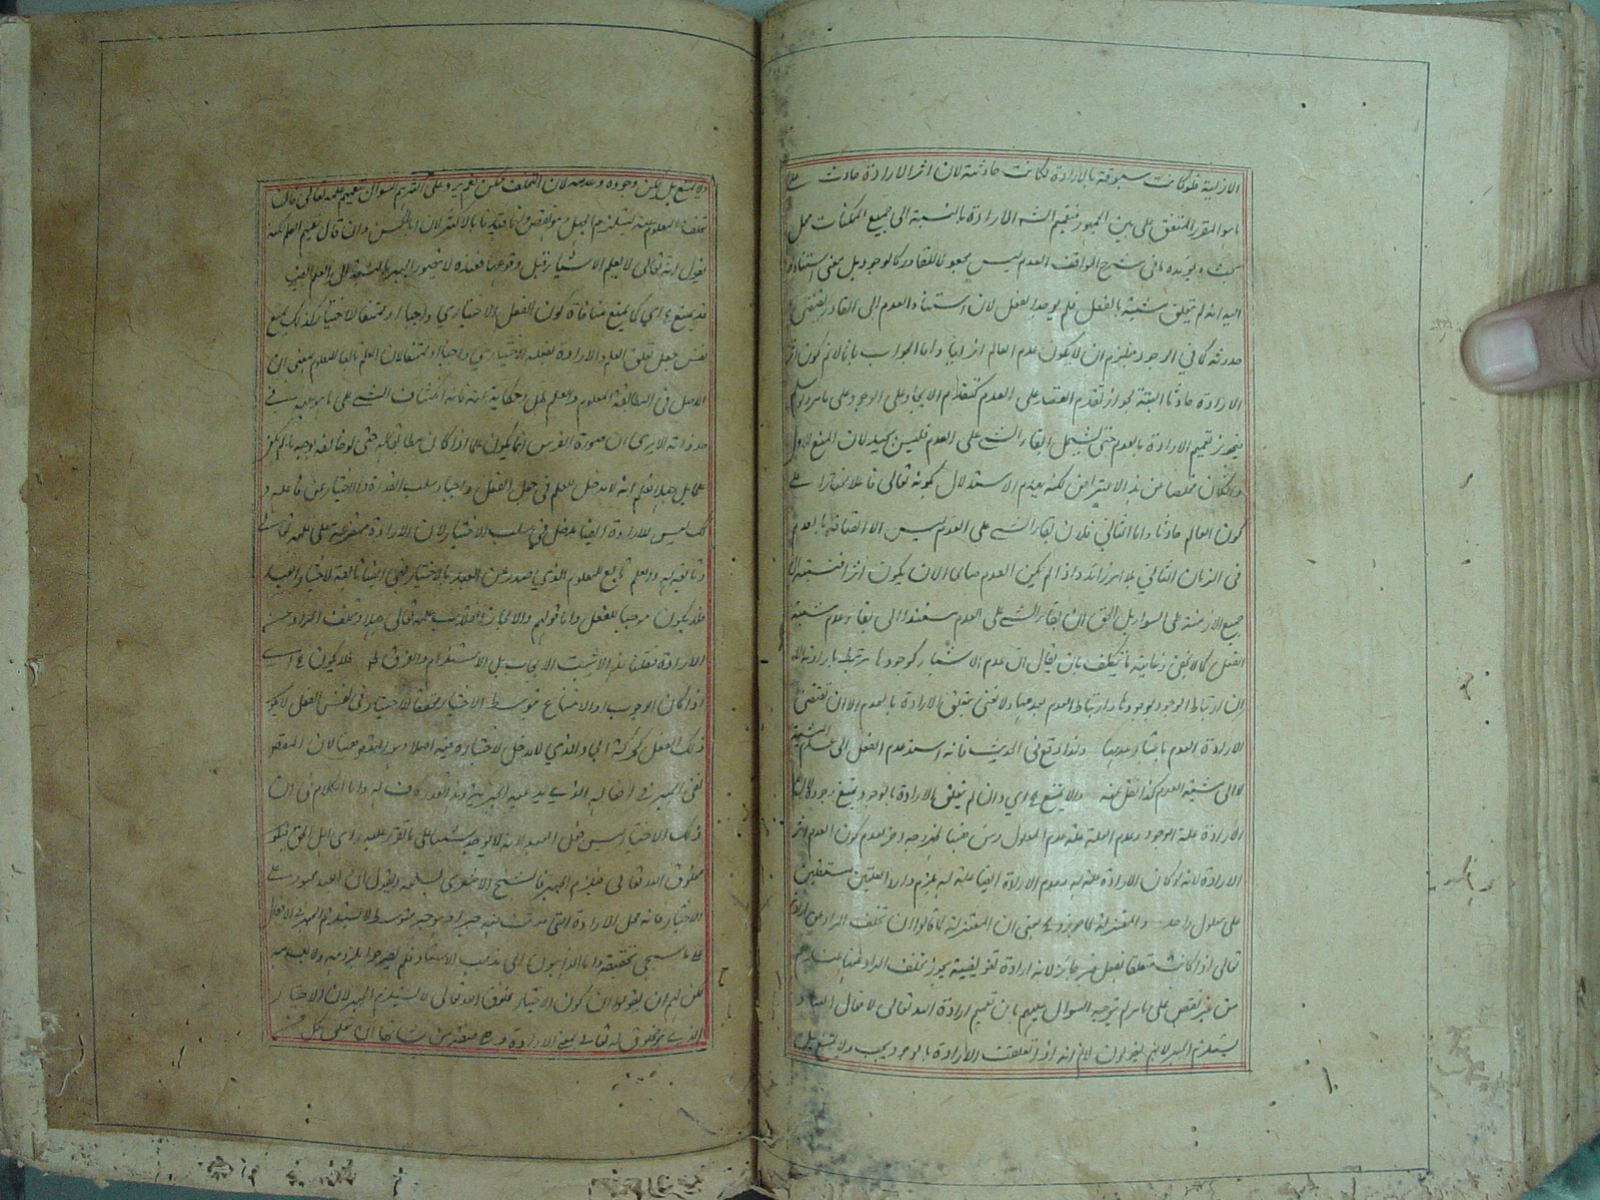 الازلية فلو كانت مسبوقة بالارادة لكانت حادثة لان اثر الارادة حادث على
ما هو المقرر المتفق على بين الجمهور فتعميم الارادة بالنسبة الى جميع الممكنات محل
بحث ويؤيده ما فى شرح المواقف العدم ليس مجعولا للقادر كالوجود بل معنى استناده
اليه انه لم يتعلق مشيته بالفعل فلم يوجد الفعل لان استناد العدم الى القادر يقتضى
حدوثه كما فى الوجود فيلزم ان لا يكون عدم العالم ازليا واما الجواب بانا لا نم كون اثر
الارادة حادثا البتة لجواز تقدم القصد على العدم كتقدم الايجاد على الوجود على ما مر ولو سلم
فيجوز تعميم الارادة بالعدم حتى يشمل ابقاء الشئ على العدم فليس بجيد لان المنع الاول
وان كان مخلصا من هذا الاعتراض لكنه يهدم الاستدلال بكونه تعالى فاعلا مختارا على
كون العالم حادثا واما الثانى فلان ابقاء الشئ على العدم ليس الا اتصافه بالعدم
فى الزمان الثانى بلا امر زائد واذا لم يكن العدم صالحا لان يكون اثرا فنسبته الى
جميع الازمنة على السواء بل الحق ان ابقاء الشئ على العدم مستندا الى بقاء عدم مشية
الفعل كما لا يخفى وغاية ما يتكلف بان يقال ان عدم الاشياء كوجودها مرتبط بارادة الله
ان ارتباط الوجود بوجودها وارتباط العدم بعدمها ولا نعنى بتعلق الارادة بالعدم الا ان تقتضى
الارادة العدم باعتبار عدمها ولذا وقع فى الحديث فانه اسند عدم الفعل الى عدم المشية
لا الى مشية العدم كذا نقل عنه ولا يمتنع اى وان لم يتعلق الارادة بالوجود يمتنع وجوده لان
الارادة علة الوجود وعدم العلة علة عدم المعلول
الارادة لانه لو كان الارادة علة له وعدم الارادة ايضا علة له يلزم توارد العلتين مستقلتين
على معلول واحد والمعتزلة لما جوزوا يعنى ان المعتزلة لما قالوا ان تخلف المراد عن ارادة
تعالى اذا كانت متعلقا بفعل غيره جائز لانه ارادة تفويضية يجوز تخلف المراد عنها
من غير نقص على ما مر لم يتوجه السؤال عليهم بان تعميم ارادة الله تعالى لافعال العباد
يستلزم الجبر لانهم يقولون لا نم انه اذا تعلقت الارادة بالوجود يجب ولا يمتنع بل
ولا يمتنع بل يمكن وجوده وعدمه لان التخلف ممكن
تخلف المعلوم عنه يستلزم الجهل وهو نقص وانما قيدنا بالاكثر لان ابا الحسين وان قال بعميم العلم لكنه
يقول انه تعالى لا يعلم الاشياء قبل وقوعها فعنده لا يتصور الجبر بالنسبة الى العلم ايضا
قد يمنع اى كما يمنع منافاة كون الفعل الاختيارى واجبا او ممتنعا لاختيار كذلك يمنع
نفس جعل تعلق العلم والارادة بفعله الاختيارى واجبا او ممتنعا لان العلم تابع للمعلوم بمعنى ان
الاصل فى المطابقة المعلوم والعلم ظل وحكاية عنه فانه انكشاف الشئ على ما هو عليه فى
حد ذاته الا يرى ان صورة الفرس انما يكون علما اذا كان مطابقا له حتى لو خالفه بوجه ما لم يكن
علما بل جهلا فعلم انه لا مدخل للعلم فى جعل الفعل واجبا وسلب القدرة والاختيار عن فاعله و
كذا ليس للارادة ايضا مدخل فى سلب الاختيار لان الارادة متفرعة على علمه تعالى
وتابعة له والعلم تابع للمعلوم الذى يصدر عن العبد بالاختيار فهى ايضا تابعة لاختيار العبد
فلا يكون موجبا للفعل واما قولهم والا لجاز انقلاب علمه تعالى جهلا وتخلف المراد عن
الارادة فقلنا هذا لا يثبت الايجاب بل الاستلزام والفرق ظاهر فلا يكون اى
اذا كان الوجوب او الامتناع بتوسط الاختيار محققا لاختيار فى نفس الفعل لا يكون
ذلك الفعل كحركة الجماد الذى لا مدخل لاختياره فيه اصلا وهو المقصود ههنا لان المقصود
نفى الجبر فى افعاله الذى يدعيه الجبرية وهذا القدر كاف له واما الكلام فى ان
ذلك الاختيار ليس فعل العبد لانه لا يوجد شيئا على ما تقرر عليه راى اهل الحق فيكون
مخلوق الله تعالى فيلزم الجبر فالشيخ الاشعرى يسلمه ويقول ان العبد مجبور فى
الاختيار فانه محل الارادة التى حدثت فيه جبرا
على ما سيجئ تحقيقه واما الذاهبون الى مذهب الاستاد فلم يصرحوا بلزومه ولا بعدمه
لكن لهم ان يقولوا ان كون الاختيار مخلوق الله تعالى لا يستلزم الجبر لان الاختيار
الذى هو مخلوق له تعالى بمعنى الارادة وهى صفة من شانها ان يتعلق بكل من